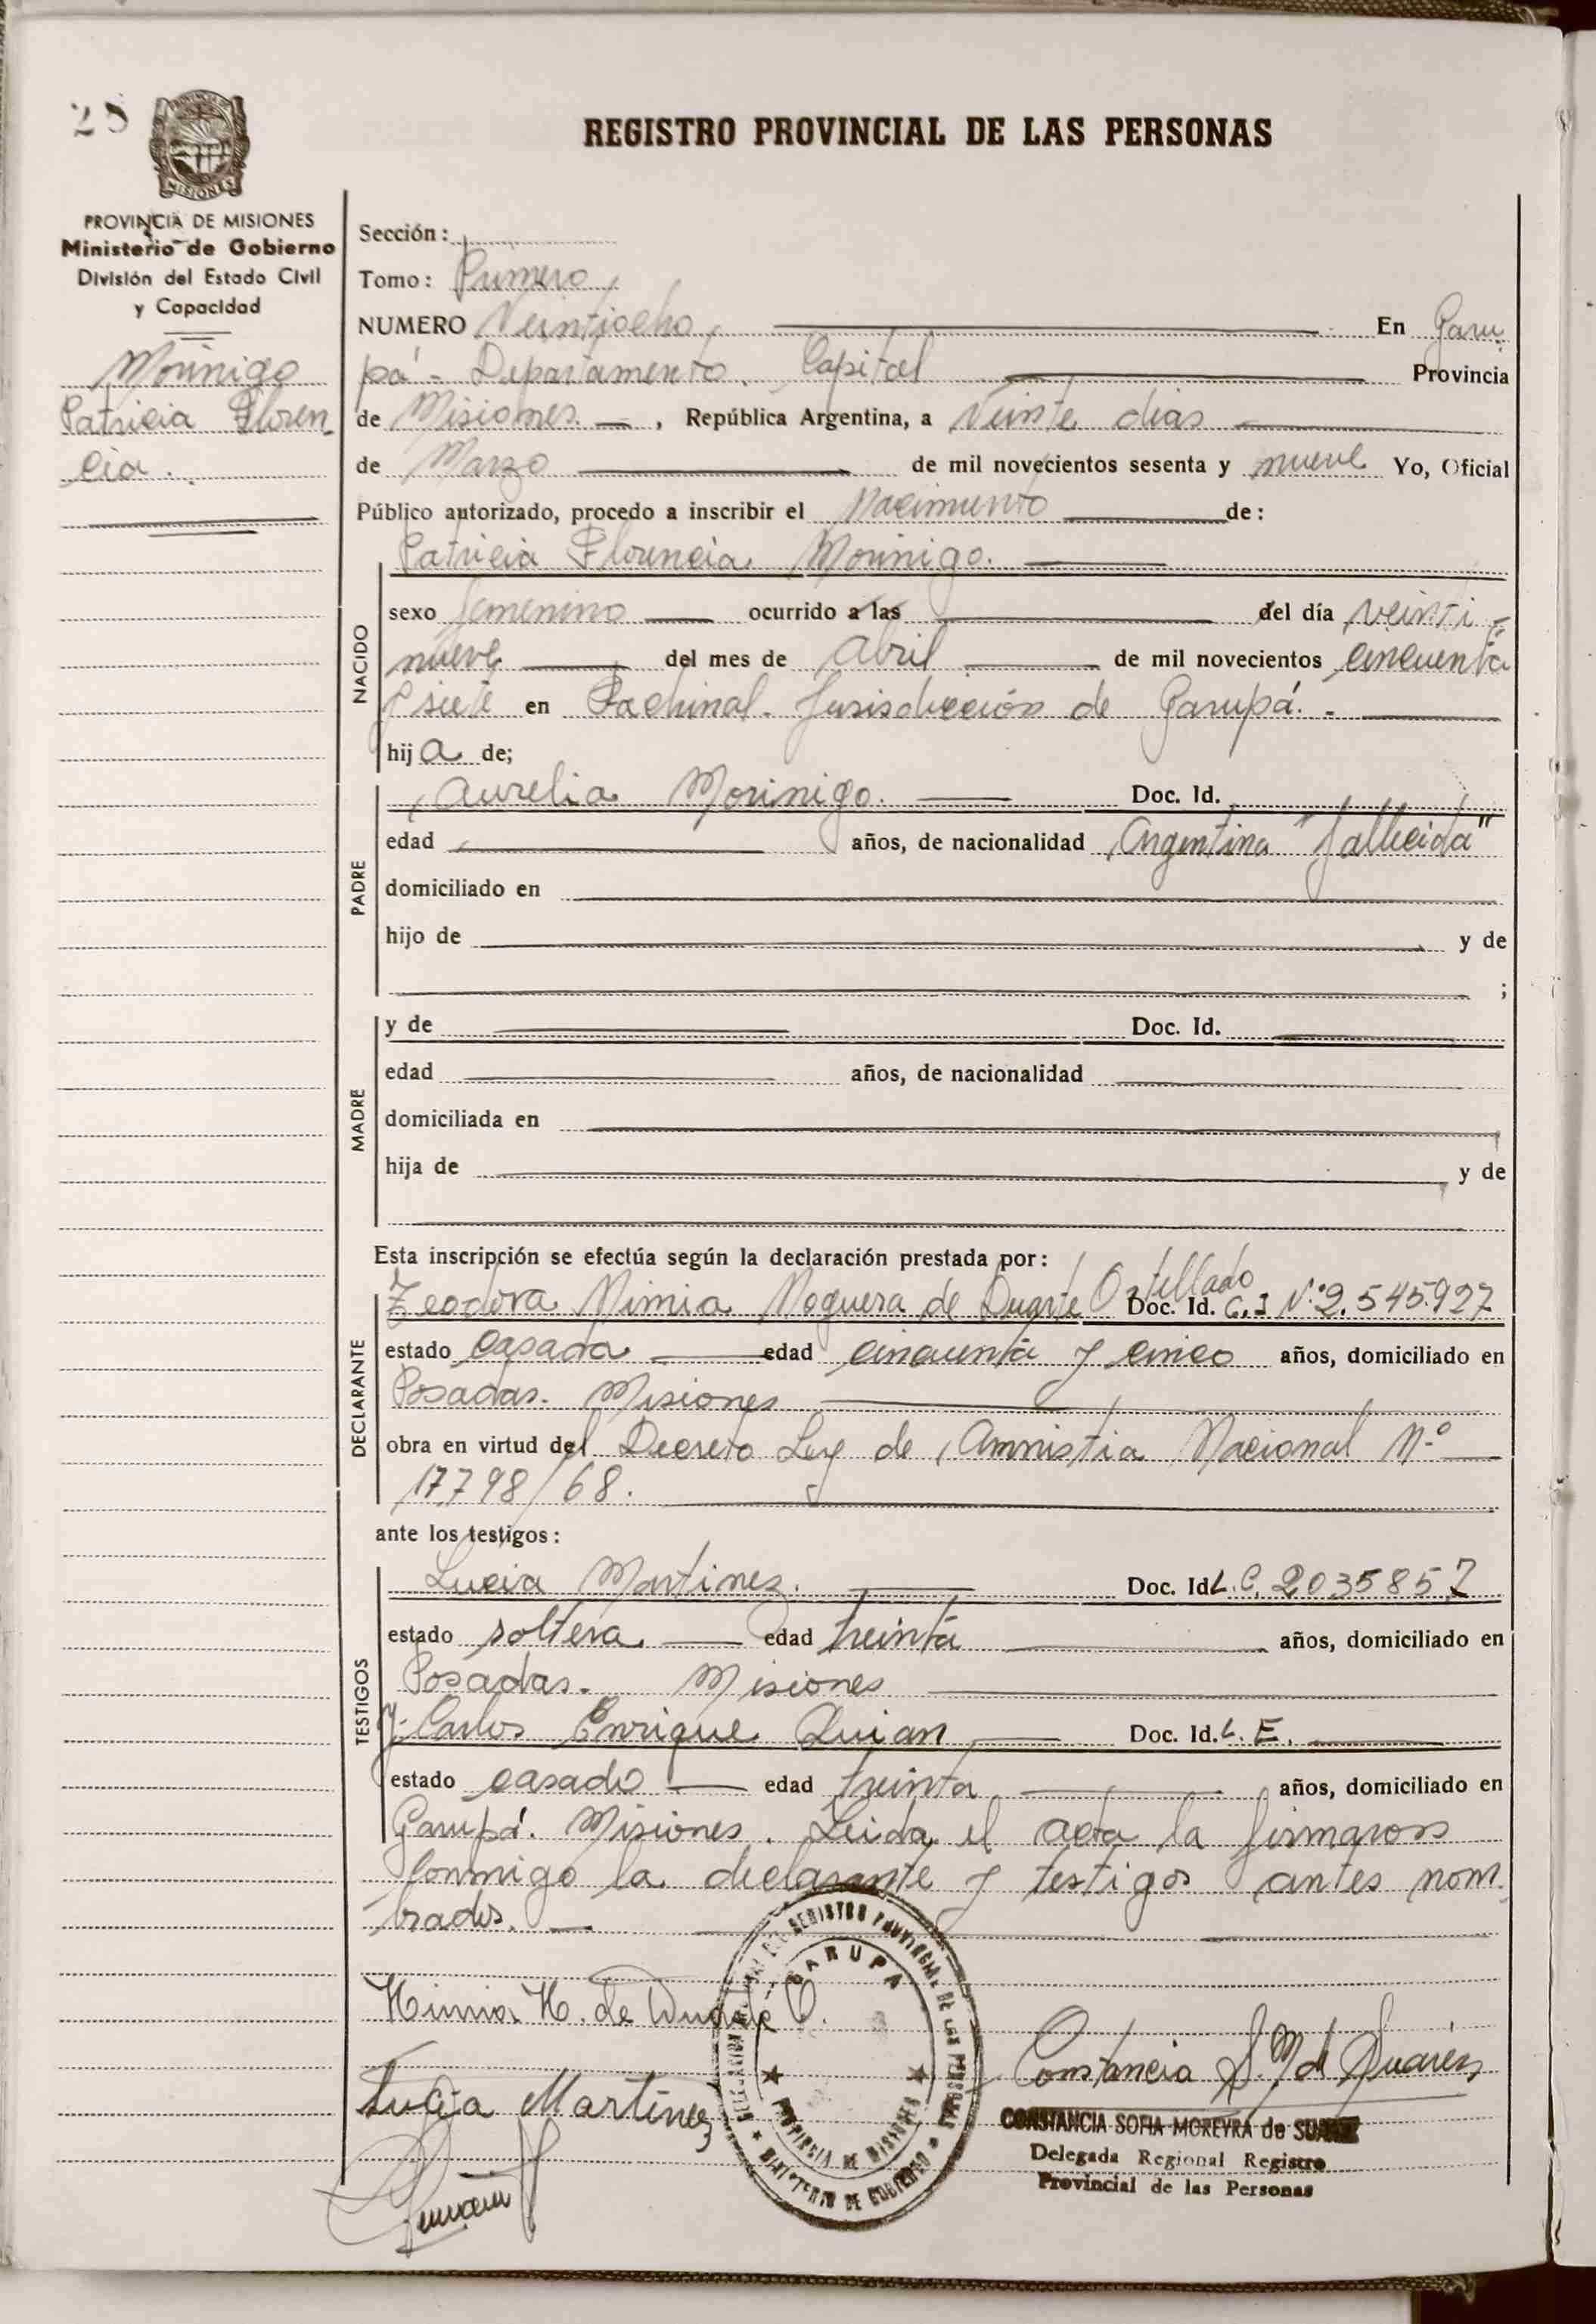 28
MISIONES
REGISTRO PROVINCIAL DE LAS PERSONAS
PROVINCIA DE MISIONES
Ministerio de Gobierno
División del Estado Civil
y Capacidad
Morinigo
Patricia Floren
cia.
Sección:
Tomo: Primero
NUMERO Veintiocho, En Garu
pá - Departamento. Capital Provincia
de Misiones. , República Argentina, a Veinte dias
de Marzo de mil novecientos sesenta y nueve Yo, Oficial
Público autorizado, procedo a inscribir el Nacimiento de:
Patricia Florencia Morinigo.
NACIDO
sexo femenino ocurrido a las del día veinti-
nueve del mes de Abril de mil novecientos cincuenta
y siete en Pachinal. Jurisdicción de Garupá. -
hija de;
PADRE
Aurelia Morinigo. Doc. Id.
edad años, de nacionalidad Argentina "fallecida"
domiciliado en
hijo de y de
;
MADRE
y de Doc. Id.
edad años, de nacionalidad
domiciliada en
hija de y de
Esta inscripción se efectúa según la declaración prestada por:
DECLARANTE
Zeodora Nimia Noguera de Duarte Ortellado Doc. Id. C.I Nº2.545.927
estado casada edad cincuenta y cinco años, domiciliado en
Posadas. Misiones
obra en virtud del Decreto Ley de Amnistia Nacional Nº
17.798/68.
ante los testigos:
TESTIGOS
Lucia Martinez. Doc. Id L.C. 2035857
estado soltera edad treinta años, domiciliado en
Posadas. Misiones
y- Carlos Enrique Quian Doc. Id. L.E.
estado casado edad treinta años, domiciliado en
Garupá. Misiones. Leida el acta la firmaron
Conmigo la declarante y testigos antes nom
brados.
GARUPA
PROVINCIA DE MISIONES
MINISTERIO DE GOBIERNO
Nimia N. de Duarte O.
Lucia Martinez
Constancia S. M d Suarez
CONSTANCIA SOFIA MOREYRA de SUAREZ
Delegada Regional Registro
Provincial de las Personas